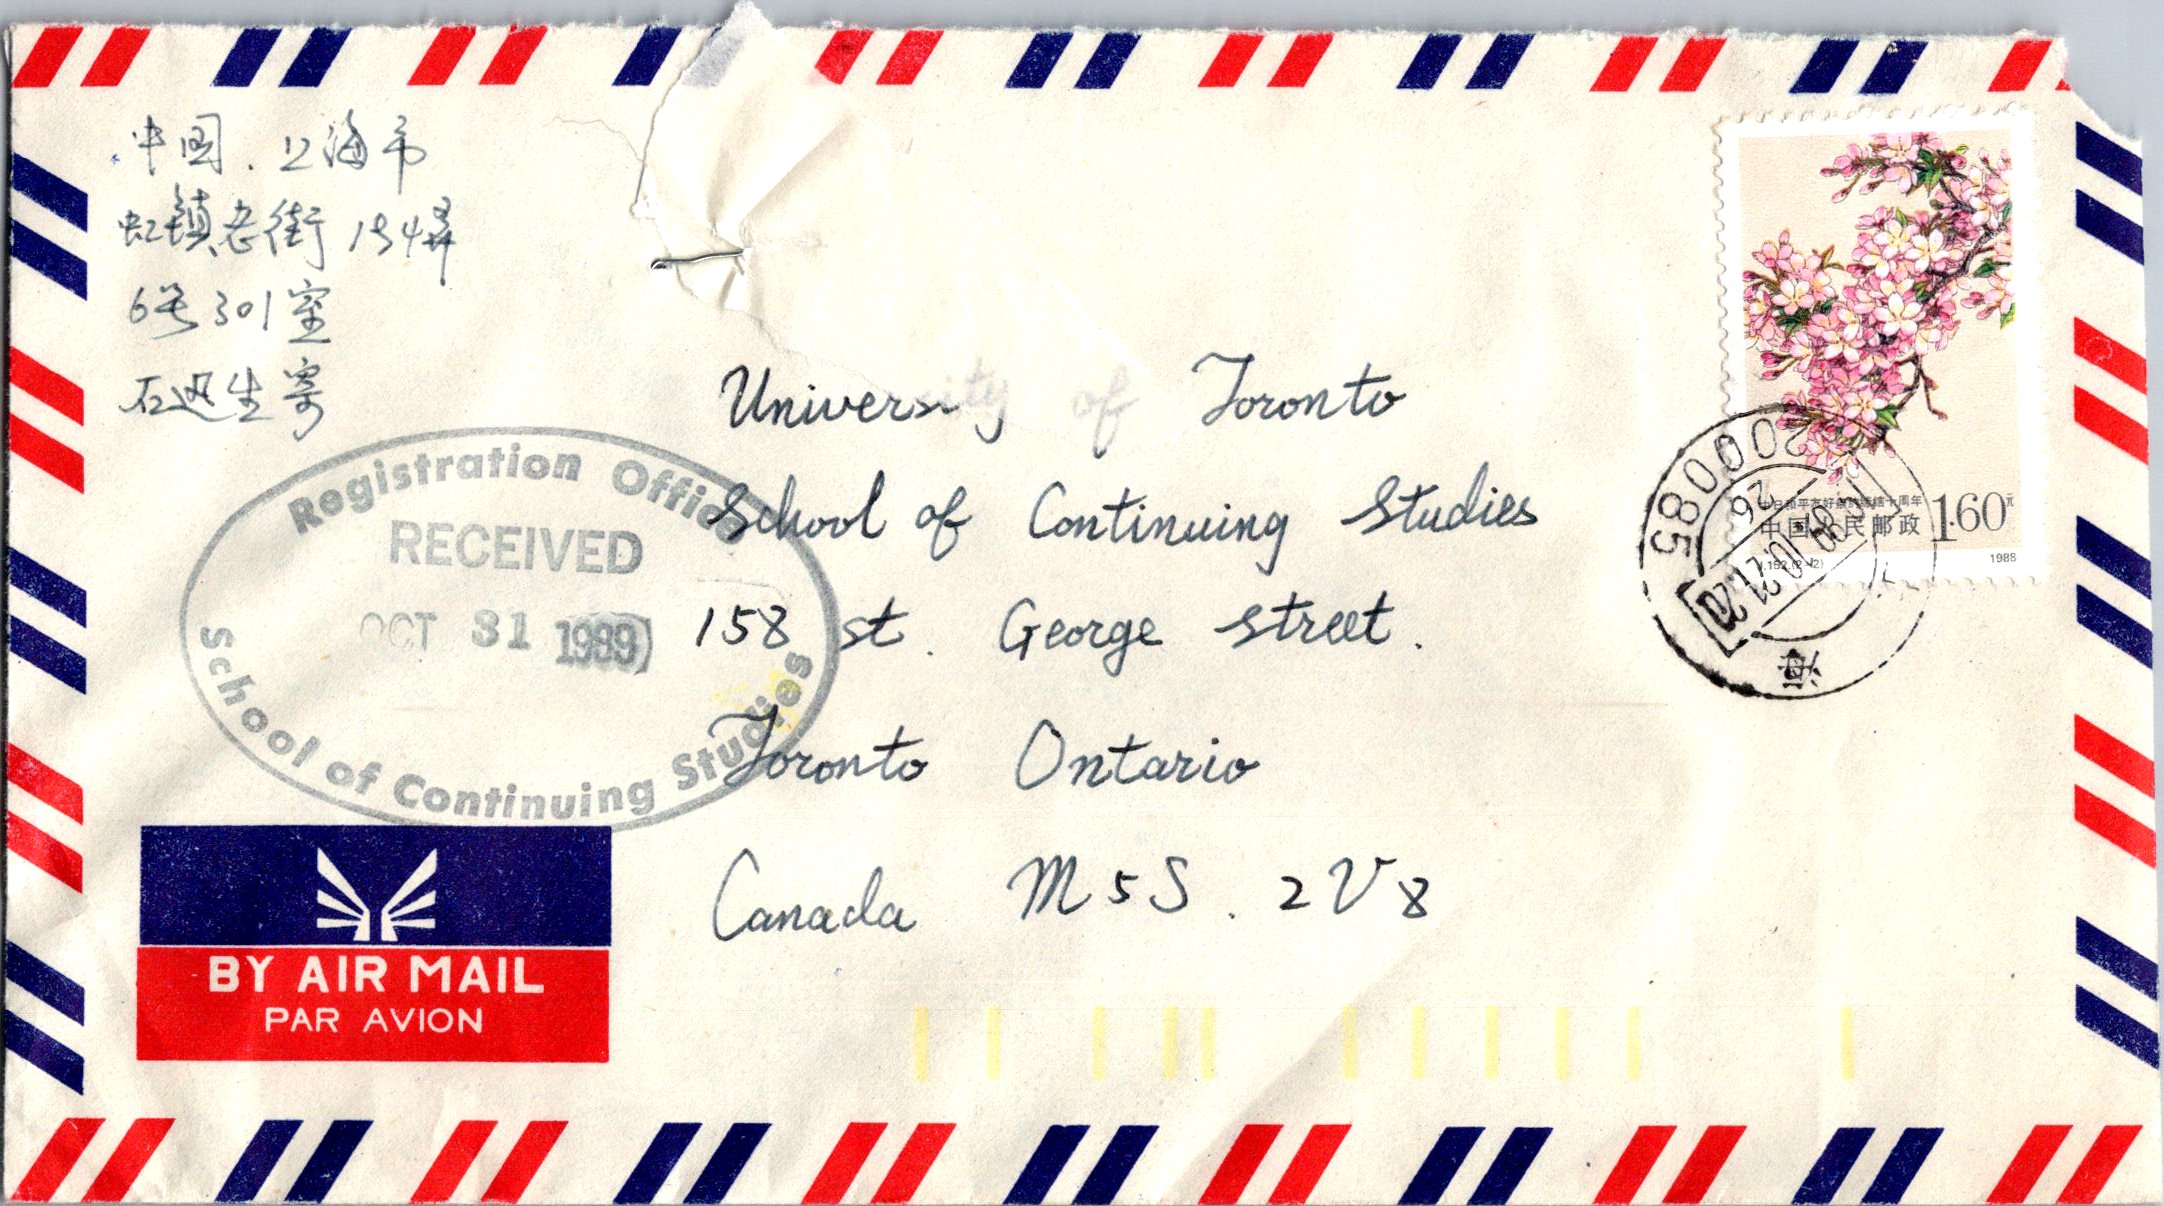 中国.上海市
虹镇老街154弄
6号301室
石迅生寄
Registration Office
RECEIVED
OCT 31 1989
School of Continuing Studies
University of Toronto
School of Continuing Studies
158 st. George street.
Toronto Ontario
Canada M5S. 2V8
BY AIR MAIL
PAR AVION
中国人民邮政 1.60元
J.152.(2-2) 1988
200085
26
海